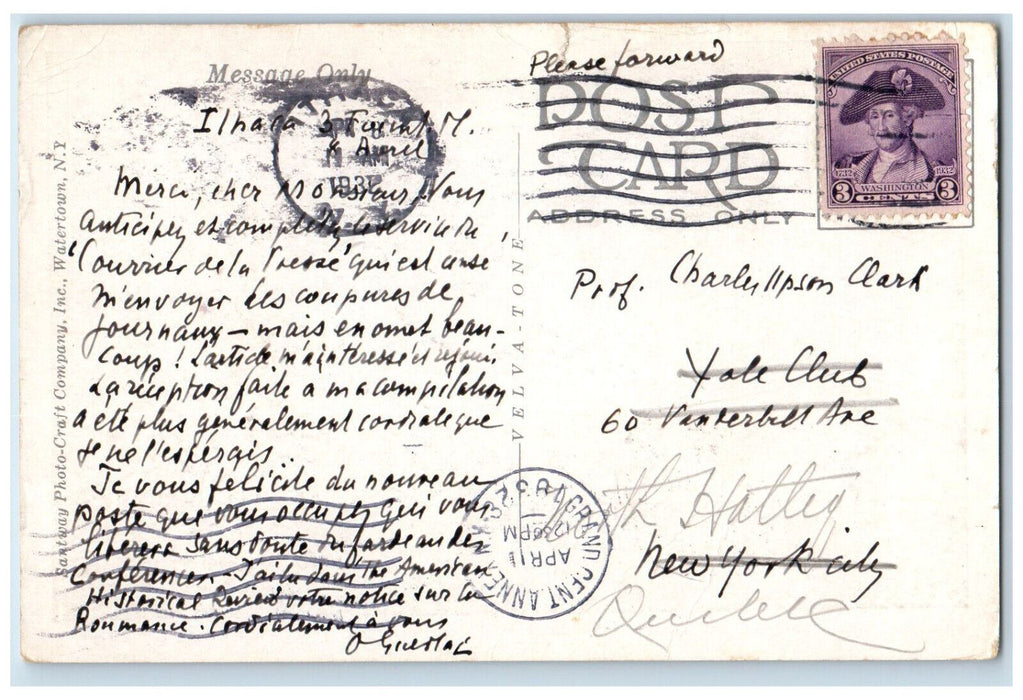 Message Only
Ithaca 3 M.
8 Avril
Merci, cher Monsieur, Vous
anticipez et complétez le service du
"Courrier de la Presse" qui est censé
m'envoyer les coupures de
journaux — mais en omet beau-
coup! L'article m'a intéressé et réjoui.
La réception faite à ma compilation
a été plus généralement cordiale que
je ne l'espérais.
Je vous félicite du nouveau
poste que vous occupez qui vous
libérera sans doute du fardeau des
Conférences. J'ai lu dans the American
Historical Review votre notice sur la
Roumanie. Cordialement à vous
O Guerlac
Santway Photo-Craft Company, Inc., Watertown, N.Y
VELVA-TONE
Please forward
POST
CARD
ADDRESS ONLY
UNITED STATES POSTAGE
1732 1932
3 WASHINGTON 3
CENTS
ITHACA
1932
Prof. Charles Upson Clark
Yale Club
60 Vanderbilt Ave
North Hatley
New York city
Quebec
GRAND CENT. ANNEX
APR 11
1230PM